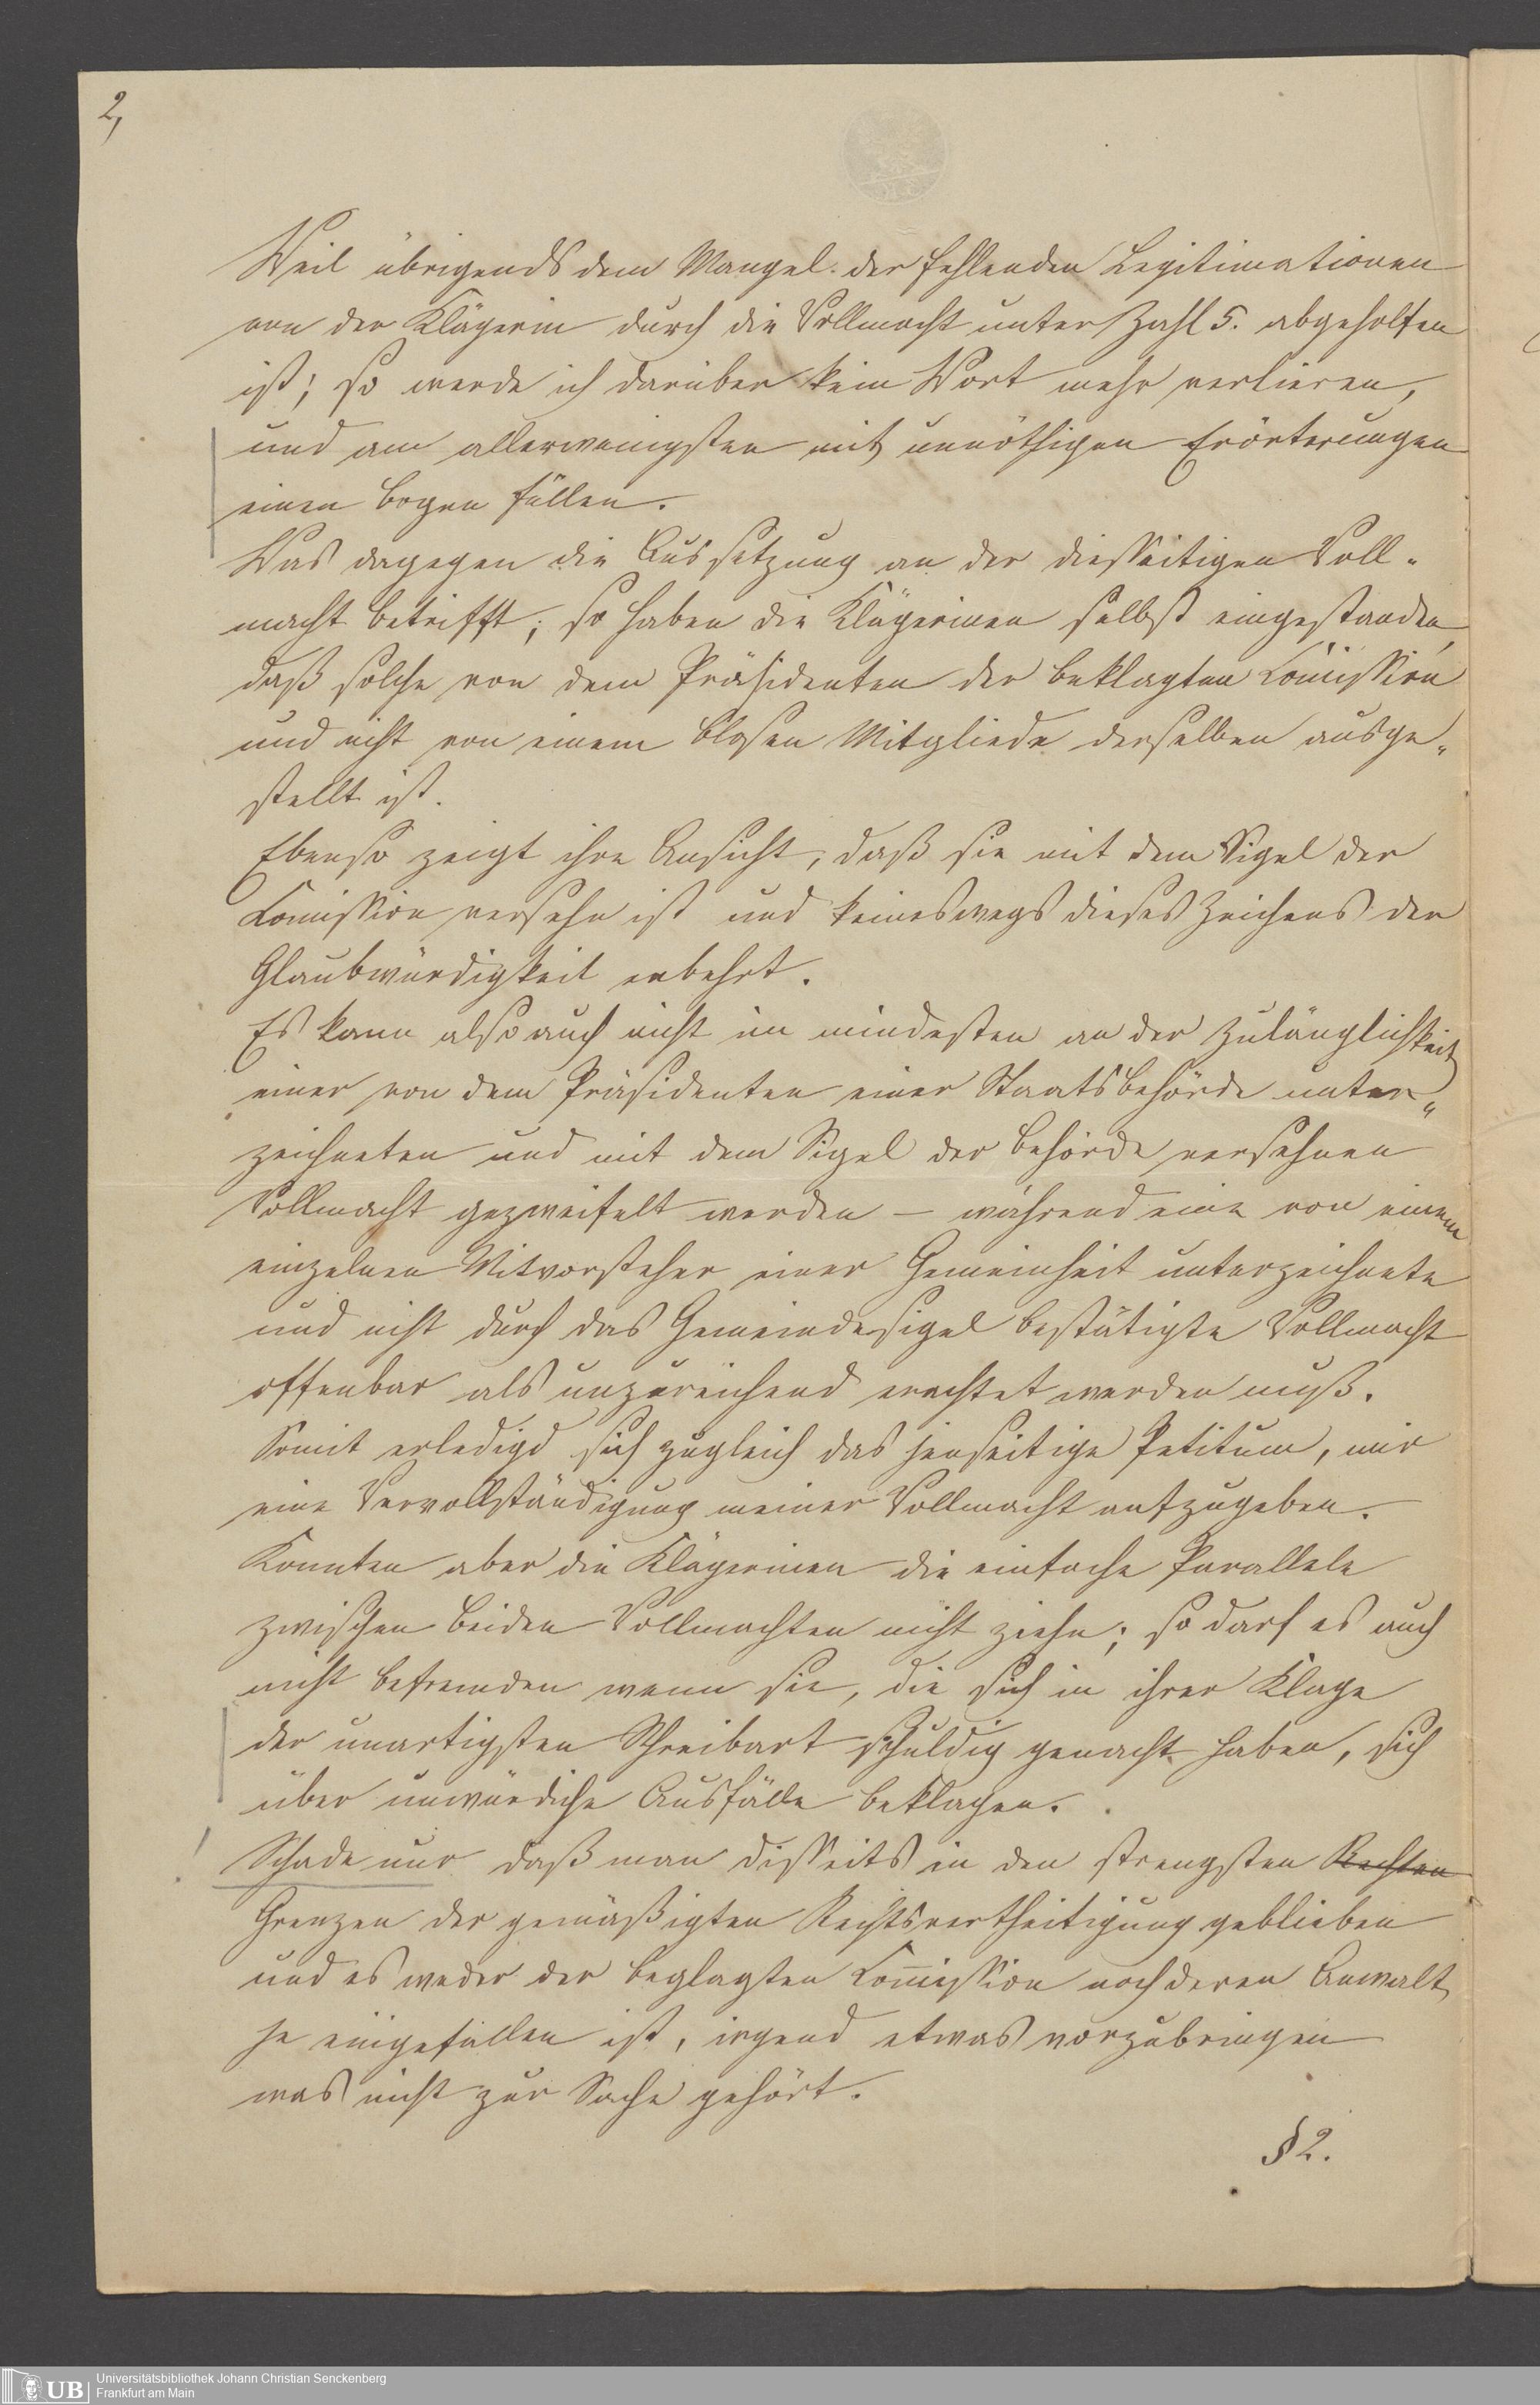 2,
Weil übrigends dem Mangel der fehlenden Legitimationen
von der Klägerin durch die Vollmacht unter Zahl 5. abgeholfen
ist; so werde ich darüber kein Wort mehr verlieren,
und am allerwenigsten mit unnöthigen Erörterungen
einen Bogen füllen.
Was dagegen die Aussetzung an der diesseitigen Voll-
macht betrifft; so haben die Klägerinen selbst eingestanden,
daß solche von dem Präsidenten der beklagten Com̄ission
und nicht von einem blosen Mitgliede derselben ausge-
stellt ist.
Ebenso zeigt ihre Ansicht, daß sie mit dem Sigel der
Comission versehn ist und keineswegs dieses Zeichens der
Glaubwürdigkeit enbehrt.
Es kann also auch nicht im mindesten an der Zulänglichkeit
einer von dem Präsidenten einer Staatsbehörde unter-
zeichneten und mit dem Sigel der Behörde versehnen
Vollmacht gezweifelt werden – während eine von einem
einzelnen Mitvorsteher einer Gemeinheit unterzeichnete
und nicht durch das Gemeindesigel bestätigte Vollmacht
offenbar als unzureichend erachtet werden muß.
Somit erledigd sich zugleich das jenseitige Petitum, mir
eine Vervollständigung meiner Vollmacht aufzugeben.
Konnten aber die Klägerinen die einfache Parallele
zwischen beiden Vollmachten nicht ziehn; so darf es auch
nicht befremden wenn sie, die sich in ihrer Klage
der unartigsten Schreibart schuldig gemacht haben, sich
über unwürdiche Ausfälle beklagen.
Schade nur daß man disseits in den strengsten Rechten
Grenzen der gemäßigten Rechtsvertheitigung geblieben
und es weder der beglagten Com̄ission noch deren Anwalt
je eingefallen ist, irgend etwas vorzubringen
was nicht zur Sache gehört.
§ 2.
UB Universitätsbibliothek Johann Christian Senckenberg
Frankfurt am Main